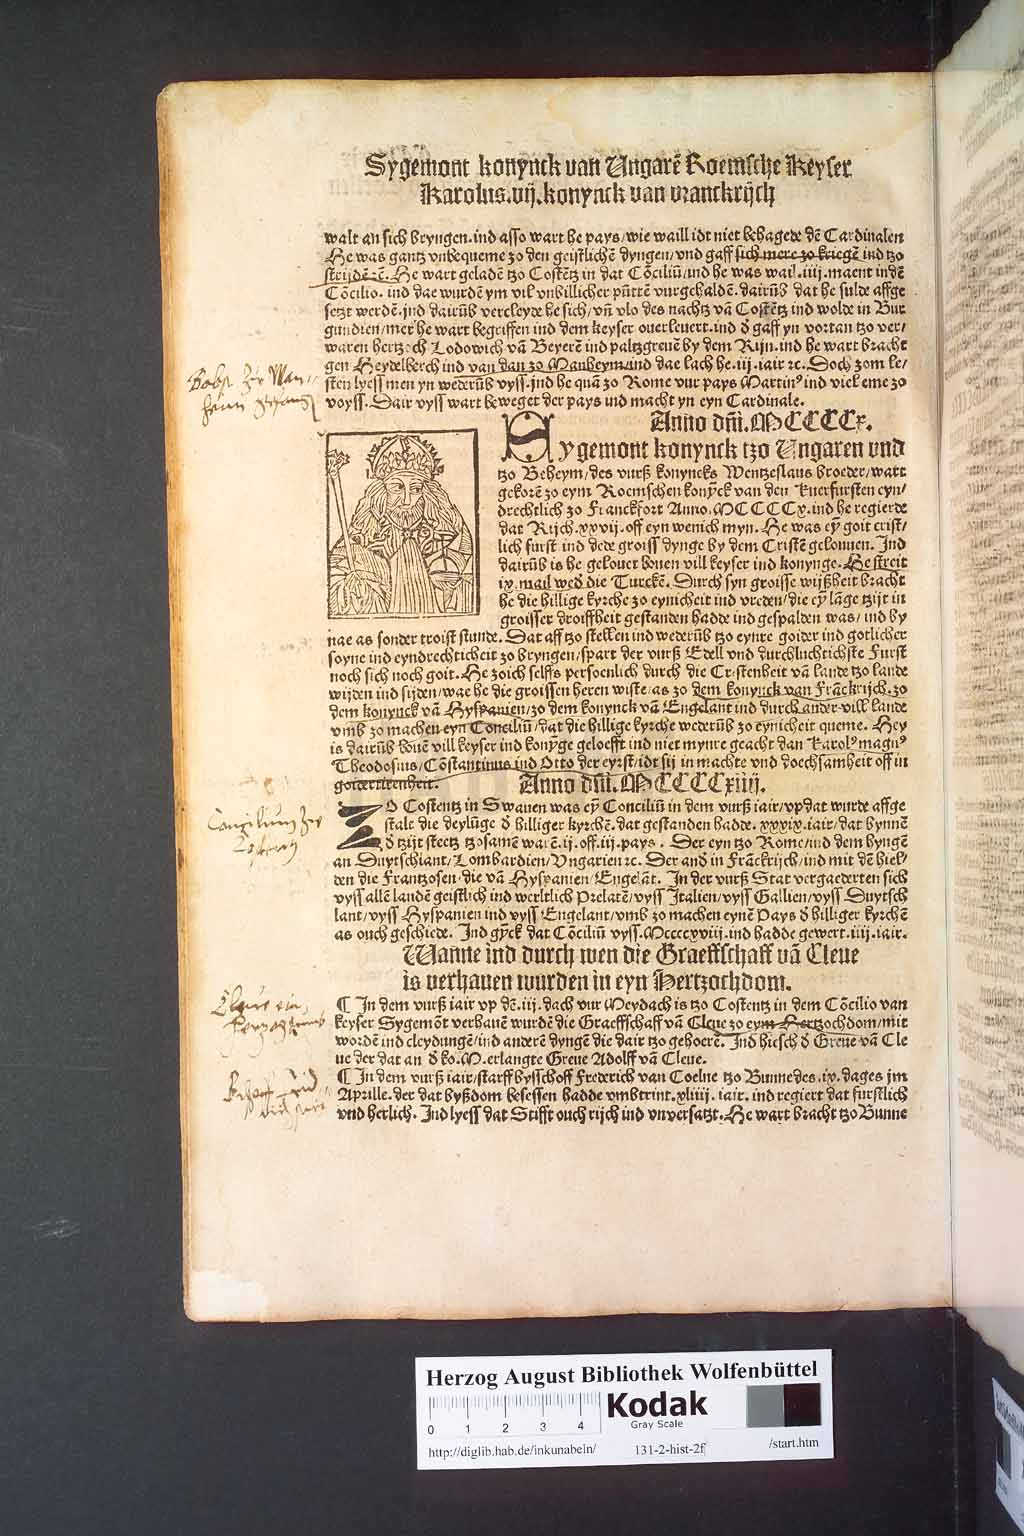 Sygemont konynck van Ungarē Roemsche Keyser
Karolus.vij.konynck van vranckrijch
walt an sich bryngen.ind asso wart he pays/wie waill idt niet behagede dē Cardinalen
He was gantz vnbequeme zo den geistlichē dyngen/vnd gaff sich mere zo kriegē ind tzo
strijdē ꝛc. He wart geladē tzo Costētz in dat Cōciliū/ind he was wail.iiij.maent in dē
Cōcilio. ind dae wurdē ym vil vnbillicher pūttē vurgehaldē. dairūb dat he sulde affge
setzt werdē.ind dairūb vercleyde he sich/vn̄ vlo des nachtz vā Costētz ind wolde in Bur
gundien/mer he wart begriffen ind dem keyser ouerleuert.ind d̄ gaff yn vortan tzo ver/
waren hertzoch Lodowich vā Beyerē ind paltzgreuē by dem Rijn.ind he wart bracht
gen Heydelberch ind van dan zo Manheym/ind dae lach he.iij.iair ꝛc. Doch zom le/
sten lyess men yn wederūb vyss.ind he quā zo Rome vur pays Martinꝰ ind viel eme zo
voyss. Dair vyss wart beweget der pays ind macht yn eyn Cardinale.
Anno dn̄i.MCCCCx.
Sygemont konynck tzo Ungaren vnd
tzo Beheym/des vurß konyncks Wentzeslaus broeder/wart
gekorē zo eym Roemschen konyck van den Kuerfursten eyn/
drechtlich zo Franckfort Anno.MCCCCx.ind he regierde
dat Rijch.xxvij.off eyn wenich myn. He was ey̅ goit crist/
lich furst ind dede groiss dynge by dem Cristē gelouuen. Ind
dairūb is he gelouet bouen vill keyser ind konynge. He streit
ix.mail wed̄ die Turckē. Durch syn groisse wijßheit bracht
he die hillige kyrche zo eynicheit ind vreden/die ey̅ lāge tzijt in
groisser droiffheit gestanden hadde ind gespalden was/ind by
nae as sonder troist stunde. Dat aff tzo stellen ind wederūb tzo eynre goider ind gotlicher
soyne ind eyndrechticheit zo bryngen/spart der vurß Edell ind durchluchtichste Furst
noch sich noch goit. He zoich selffs persoenlich durch die Cristenheit vā lande tzo lande
wijden ind sijden/wae he die groissen heren wiste/as zo dem konynck van Frāckrijch.zo
dem konynck vā Hyspanien/zo dem konynck vā Engelant ind durch ander vill lande
vmb zo machen eyn Conciliū/dat die hillige kyrche wederūb zo eynicheit queme. Hey
is dairūb bouē vill keyser ind kony̅ge geloefft ind niet mynre geacht dan Karolꝰ magnꝰ
Theodosius/Cōstantinus ind Otto der eyrst/idt sij in machte vnd doechsamheit off in
goidertirenheit.
Anno dn̄i.MCCCCxiiij.
ZO Costentz in Swauen was ey̅ Conciliū in dem vurß iair/vp dat wurde affge
stalt die deylūge d̄ hilliger kyrchē.dat gestanden hadde.xxxix.iair/dat bynnē
d̄ tzijt steetz tzosamē warē.ij.off.iij.pays. Der eyn tzo Rome/ind dem hyngē
an Duytschlant/Lombardien/Vngarien ꝛc. Der and̄ in Frāckrijch/ind mit dē hiel/
den die Frantzosen/die vā Hyspanien/Engelāt. In der vurß Stat vergaederten sich
vyss allē landē geistlich ind werltlich Prelatē/vyss Italien/vyss Gallien/vyss Duytsch
lant/vyss Hyspanien ind vyss Engelant/vmb zo machen eynē Pays d̄ hilliger kyrchē
as ouch geschiede. Ind gy̅ck dat Cōciliū vyss.Mccccxviij.ind hadde gewert.iiij.iair.
Wanne ind durch wen die Graeffschaff vā Cleue
is verhauen wurden in eyn Hertzochdom.
¶ In dem vurß iair vp dē.iij.dach vur Meydach is tzo Costentz in dem Cōcilio van
keyser Sygemōt verhauē wurdē die Graeffschaff vā Cleue zo eym Hertzochdom/mit
wordē ind cleydungē/ind anderē dyngē die dair tzo gehoerē. Ind hiesch d̄ Greue vā Cle
ue der dat an d̄ ko.M.erlangte Greue Adolff vā Cleue.
¶ In dem vurß iair/starff bysschoff Frederich van Coelne tzo Bunne des.ix.dages im
Aprille.der dat byßdom besessen hadde vmbtrint.xliiij.iair.ind regiert dat furstlich
vnd herlich. Ind lyess dat Stifft ouch rijch ind vnversatzt. He wart bracht tzo Bunne
Concilium zu
Cleve ein
Herzogthumb
Herzog August Bibliothek Wolfenbüttel
0 1 2 3 4
Kodak
Gray Scale
http://diglib.hab.de/inkunabeln/ 131-2-hist-2f /start.htm